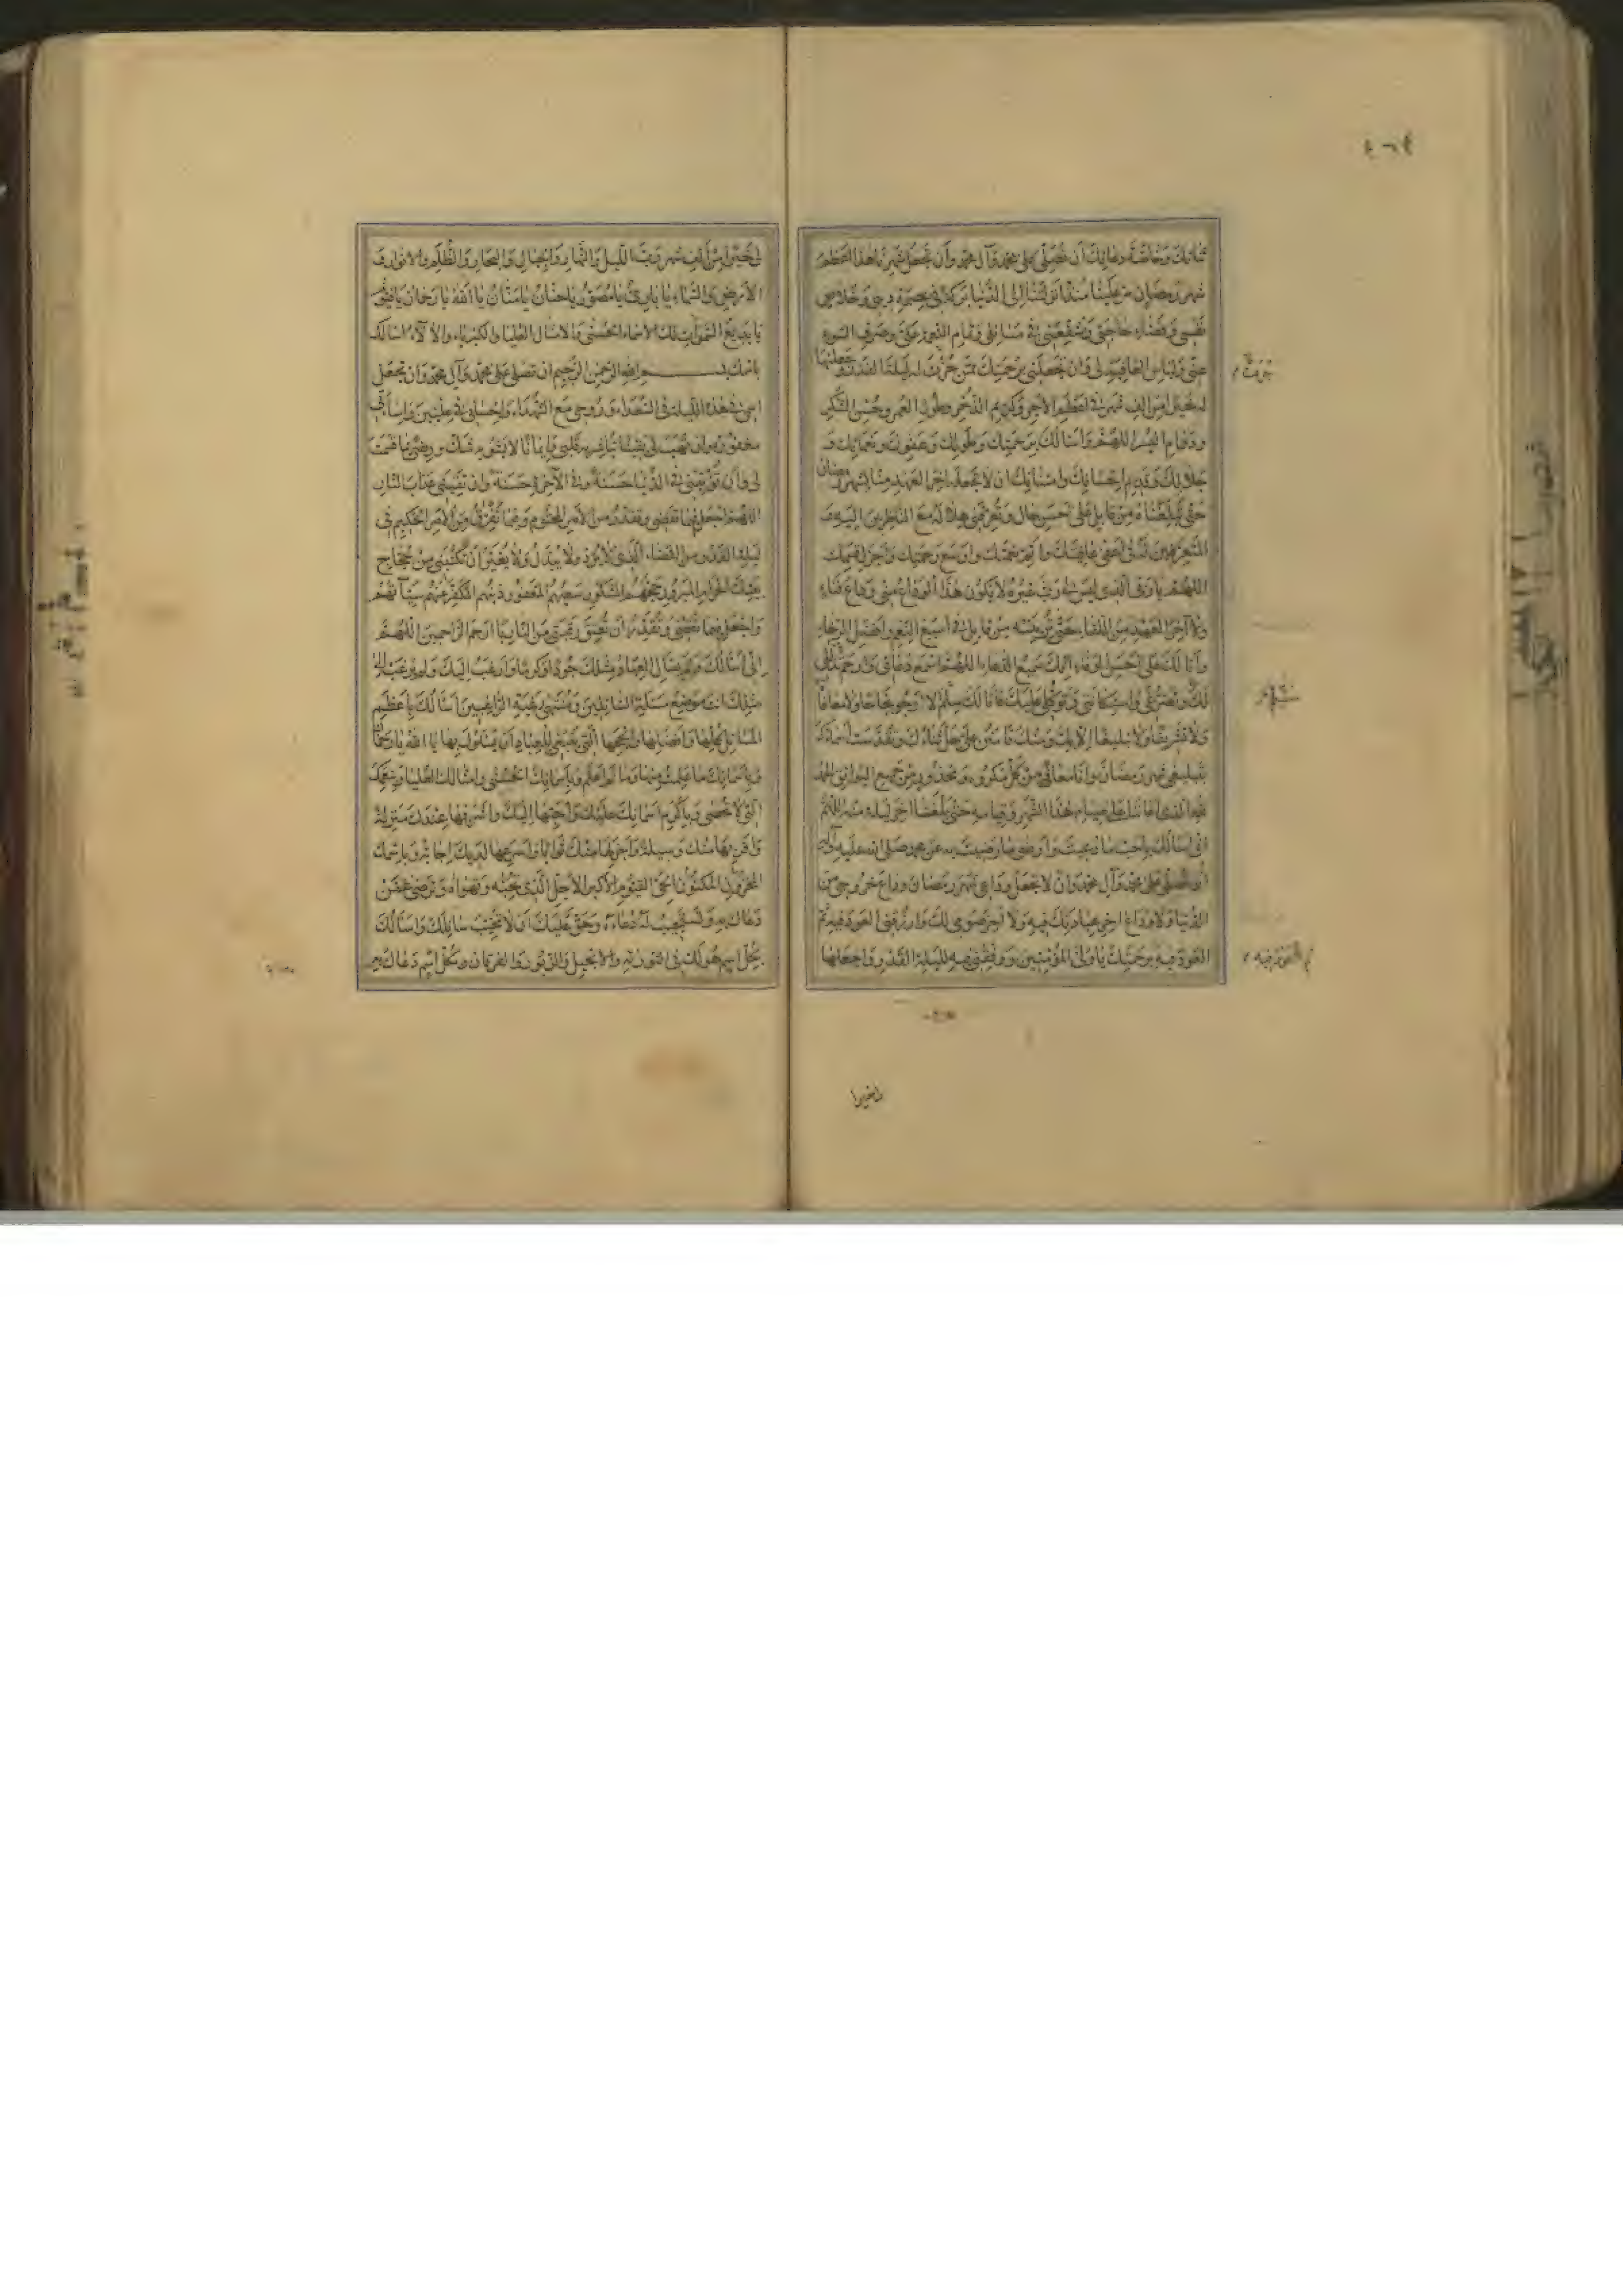 ثنائك وخاصة دعائك أن تصلي على محمد وآل محمد وأن تجعل شهرنا هذا أعظم
شهر رمضان مر علينا منذ أنزلتنا إلى الدنيا بركة في عصمة ديني وخلاص
نفسي وقضاء حاجتي وتشفعني في مسائلي وتمام النعمة علي وصرف السوء
عني ولباس العافية لي وأن تجعلني برحمتك ممن حزت له ليلة القدر وجعلتها
له خيرا من ألف شهر في أعظم الأجر وكريم الذخر وطول العمر وحسن الشكر
ودوام اليسر اللهم وأسألك برحمتك وطولك وعفوك ونعمائك و
جلالك وقديم إحسانك وامتنانك أن لا تجعله آخر العهد منا لشهر رمضان
حتى تبلغناه من قابل على أحسن حال وتعرفني هلاله مع الناظرين إليه و
المتعرفين له في أعفى عافيتك وأتم نعمتك وأوسع رحمتك وأجزل قسمك
اللهم يا ربي الذي ليس لي رب غيره لا يكون هذا الوداع مني وداع فناء
ولا آخر العهد من اللقاء حتى ترينيه من قابل في أسبغ النعم وأفضل الرجاء
وأنا لك على أحسن الوفاء إنك سميع الدعاء اللهم اسمع دعائي وارحم تذللي
لك وتضرعي واستكانتي وتوكلي عليك فأنا لك سلم لا أرجو نجاحا ولا معافاة
ولا تشريفا ولا تبليغا إلا بك ومنك فامنن علي جل ثناؤك وتقدست أسماؤك
بتبليغي شهر رمضان وأنا معافى من كل مكروه ومحذور ومن جميع البوائق الحمد
لله الذي أعاننا على صيام هذا الشهر وقيامه حتى بلغنا آخر ليلة منه اللهم
إني أسألك بأحب ما دعيت وأرضى ما رضيت به عن محمد صلى الله عليه وآله
أن تصلي على محمد وآل محمد وأن لا تجعل وداعي شهر رمضان وداع خروجي من
الدنيا ولا وداع آخر عبادتك فيه ولا آخر صومي لك وارزقني العود فيه ثم
العود فيه برحمتك يا ولي المؤمنين ووفقني فيه لليلة القدر واجعلها
ثم العود فيه
لي خيرا من ألف شهر رب الليل والنهار والجبال والبحار والظلم والأنوار و
الأرض والسماء يا بارئ يا مصور يا حنان يا منان يا الله يا رحمان يا قيوم
يا بديع السموات لك الأسماء الحسنى والأمثال العليا والكبرياء والآلاء أسألك
باسمك بسم الله الرحمن الرحيم أن تصلي على محمد وآل محمد وأن تجعل
اسمي في هذه الليلة في السعداء وروحي مع الشهداء وإحساني في عليين وإساءتي
مغفورة وأن تهب لي يقينا تباشر به قلبي وإيمانا لا يشوبه شك ورضى بما قسمت
لي وأن تؤتيني في الدنيا حسنة وفي الآخرة حسنة وأن تقيني عذاب النار
اللهم اجعل فيما تقضي وتقدر من الأمر المحتوم وفيما تفرق من الأمر الحكيم في
ليلة القدر من القضاء الذي لا يرد ولا يبدل ولا يغير أن تكتبني من حجاج
بيتك الحرام المبرور حجهم المشكور سعيهم المغفور ذنبهم المكفر عنهم سيئاتهم
واجعل فيما تقضي وتقدر أن تعتق رقبتي من النار يا أرحم الراحمين اللهم
إني أسألك ولم يسأل العباد مثلك جودا وكرما وأرغب إليك ولم يرغب إلى
مثلك أنت موضع مسألة السائلين ومنتهى رغبة الراغبين أسألك بأعظم
المسائل كلها وأفضلها وأنجحها التي ينبغي للعباد أن يسألوك بها يا الله يا رحمان
وبأسمائك ما علمت منها وما لم أعلم وبأسمائك الحسنى وأمثالك العليا ونعمك
التي لا تحصى وبأكرم أسمائك عليك وأحبها إليك وأشرفها عندك منزلة
وأقربها منك وسيلة وأجزلها منك ثوابا وأسرعها لديك إجابة وباسمك
المخزون المكنون الحي القيوم الأكبر الأجل الذي تحبه وتهواه وترضى عمن
دعاك به وتستجيب له دعاءه وحق عليك أن لا تخيب سائلك وأسألك
بكل اسم هو لك في التورية والإنجيل والزبور والفرقان وبكل اسم دعاك به